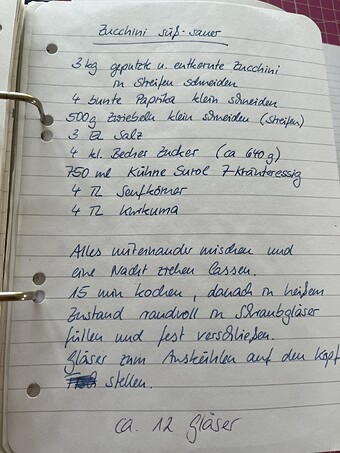 Zucchini süß-sauer
3 kg geputzte u. entkernte Zucchini
in Streifen schneiden
4 bunte Paprika klein schneiden
500g Zwiebeln klein schneiden (Streifen)
3 EL Salz
4 kl. Becher Zucker (ca 640 g)
750 ml Kühne Surol 7-Kräuteressig
4 TL Senfkörner
4 TL Kurkuma
Alles miteinander mischen und
eine Nacht ziehen lassen.
15 min kochen, danach in heißem
Zustand randvoll in Schraubgläser
füllen und fest verschließen.
Gläser zum Auskühlen auf den Kopf
stellen.
ca. 12 Gläser